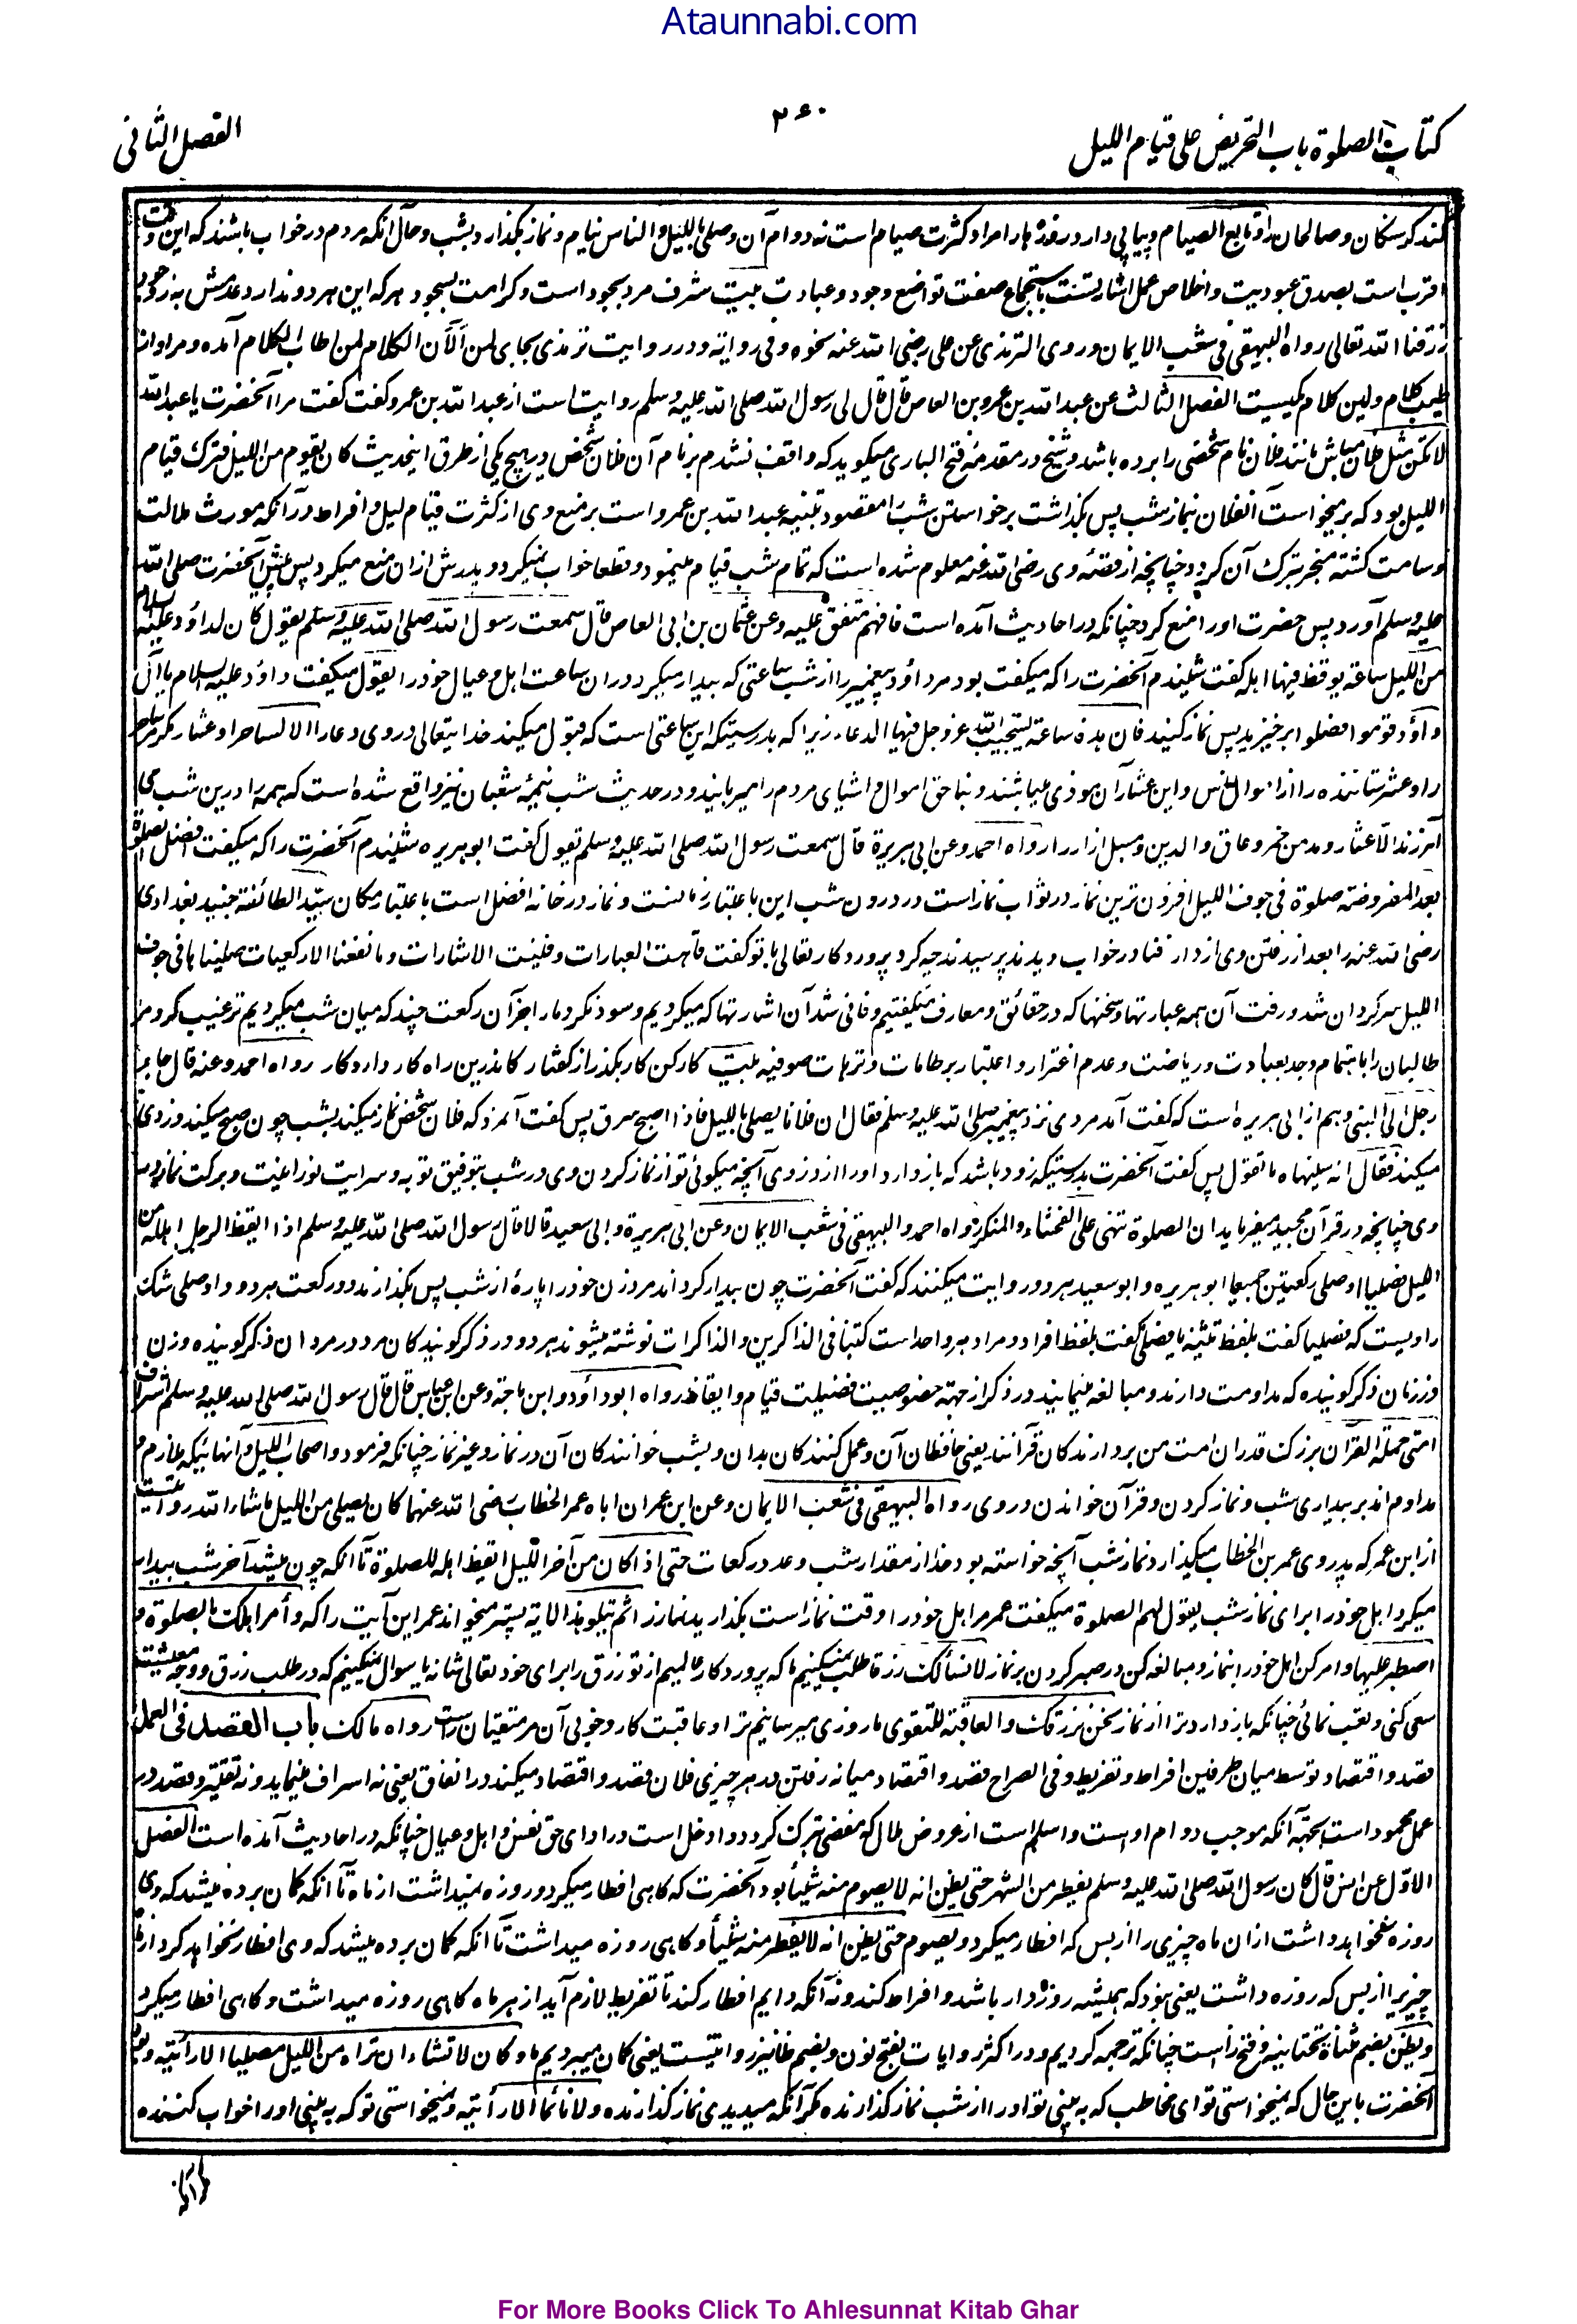 Ataunnabi.com
کتاب الصلوة باب التحریض علی قیام اللیل
۲۶۰
الفصل الثانی
کند گرسنگان و صالحان را و تابع الصیام و پیاپی دارد روزه ها را مراد کثرت صیام است نه دوام آن و صلی باللیل و الناس نیام و نماز بگذارد بشب و حال آنکه مردم در خواب باشند که این وقت
اقرب است بصدق عبودیت و اخلاص عمل اشارتست باستجماع صفت تواضع وجود و عبادت بیت شرف مرد بجود است و کرامت بسجود هرکه این هر دو ندارد عدمش به ز وجود
رزقنا الله تعالی رواه البیهقی فی شعب الایمان و روی الترمذی عن علی رضی الله عنه نحوه و فی روایته و در روایت ترمذی بجای لمن الان الکلام لمن اطاب الکلام آمده و مراد از
طیب کلام و لین کلام یکیست الفصل الثالث عن عبدالله بن عمرو بن العاص قال قال لی رسول الله صلی الله علیه وسلم روایت است از عبدالله بن عمرو گفت گفت مرا آنحضرت یا عبدالله
لا تکن مثل فلان مباش مانند فلان نام شخصی را برده باشد و شیخ در مقدمه فتح الباری میگوید که واقف نشدم بر نام آن فلان شخص در هیچ یکی از طرق اینحدیث کان یقوم من اللیل فترک قیام
اللیل بود که برمیخواست آنفلان بنماز شب پس بگذاشت برخواستن شب را مقصود تنبیه عبدالله بن عمرو است بر منع وی از کثرت قیام لیل و افراط در آنکه مورث ملالت
و سامت گشته منجر بترک آن گردد چنانچه از قصهٔ وی رضی الله عنه معلوم شده است که تمام شب قیام مینمود و قطعا خواب نمیکرد و پدرش ازان منع میکرد پس پیش آنحضرت صلی الله
علیه وسلم آورد پس حضرت او را منع کرد چنانکه در احادیث آمده است فافهم متفق علیه و عن عثمان بن ابی العاص قال سمعت رسول الله صلی الله علیه وسلم یقول کان لداؤد علیه السلام
من اللیل ساعة یوقظ فیها اهله گفت شنیدم آنحضرت را که میگفت بود مر داؤد پیغمبر را از شب ساعتی که بیدار میکرد دران ساعت اهل و عیال خود را یقول میگفت داؤد علیه السلام یا آل
داؤد قوموا فصلوا برخیزید پس نماز کنید فان هذه ساعة یستجیب الله عز وجل فیها الدعاء زیرا که بدرستیکه این ساعتی است که قبول میکند خدایتعالی دروی دعا را الا لساحر او عشار مگر ساحر
را و عشر ستاننده را از اموال ناس و این عشاران موذی میباشند و بناحق اموال و اشیای مردم را میربایند و در حدیث شب نیمهٔ شعبان نیز واقع شده است که همه را درین شب می
آمرزند الا عشار و مدمن خمر و عاق والدین و مسبل ازار را رواه احمد و عن ابی هریرة قال سمعت رسول الله صلی الله علیه وسلم یقول گفت ابوهریره شنیدم آنحضرت را که میگفت افضل الصلوة
بعد المفروضة صلوة فی جوف اللیل افزون ترین نماز در ثواب نماز است در درون شب این باعتبار زمانست و نماز در خانه افضل است باعتبار مکان سید الطائفه جنید بغدادی
رضی الله عنه را بعد از رفتن وی از دار فنا در خواب دیدند پرسیدند چه کرد پروردگار تعالی با تو گفت تاهت العبارات و فنیت الاشارات و ما نفعنا الا رکعیات صلیناها فی جوف
اللیل سرگردان شد و رفت آن همه عبارتها و سخنها که در حقائق و معارف میگفتیم و فانی شد آن اشارتها که میکردیم و سود نکرد ما را جز آن رکعت چند که میان شب میکردیم ترغیب کرد مر
طالبان را باهتمام و جد بعبادت و ریاضت و عدم اغترار و اعتبار بر طامات و ترهات صوفیه بیت کار کن کار بگذر از گفتار کاندرین راه کار دارد کار رواه احمد و عنه قال جاء
رجل الی النبی و هم از ابی هریره است که گفت آمد مردی نزد پیغمبر صلی الله علیه وسلم فقال ان فلانا یصلی باللیل فاذا اصبح سرق پس گفت آنمرد که فلان شخص نماز میکند بشب چون صبح میکند دزدی
میکند فقال انه سینهاه ما تقول پس گفت آنحضرت بدرستیکه زود باشد که باز دارد او را از دزدی آنچه میگوئی تو از نماز کردن وی در شب بتوفیق توبه و سرایت نورانیت و برکت نماز در
وی چنانچه در قرآن مجید میفرماید ان الصلوة تنهی علی الفحشاء والمنکر رواه احمد والبیهقی فی شعب الایمان و عن ابی هریرة و ابی سعید قالا قال رسول الله صلی الله علیه وسلم اذا ایقظ الرجل اهله من
اللیل فصلیا او صلی رکعتین جمیعا ابوهریره و ابوسعید هر دو روایت میکنند که گفت آنحضرت چون بیدار گرداند مرد زن خود را پارهٔ از شب پس بگذارند دو رکعت هر دو او صلی شک
راویست که فصلیا گفت بلفظ تثنیه یا فصلی گفت بلفظ افراد و مراد هر واحد است کتبا فی الذاکرین و الذاکرات نوشته میشوند هر دو در ذکر گویندگان مرد در مردان ذکر گوینده و زن
در زنان ذکر گوینده که مداومت دارند و مبالغه مینمایند در ذکر از جهته خصوصیت فضیلت قیام و ایقاظ رواه ابوداؤد و ابن ماجة و عن ابن عباس قال قال رسول الله صلی الله علیه وسلم اشراف
امتی حملة القرآن بزرگ قدران امت من بردارندگان قرآنند یعنی حافظان آن و عمل کنندگان بدان و بشب خوانندگان آن در نماز و غیر نماز چنانکه فرمود و اصحاب اللیل و آنهائیکه ملازم و
مداوم اند بر بیداری شب و نماز کردن و قرآن خواندن دروی رواه البیهقی فی شعب الایمان و عن ابن عمر ان اباه عمر بن الخطاب رضی الله عنهما کان یصلی من اللیل ما شاء الله روایت است
از ابن عمر که پدر وی عمر بن الخطاب میگذارد نماز شب آنچه خواسته بود خدا از مقدار شب و عدد رکعات حتی اذا کان من آخر اللیل ایقظ اهله للصلوة تا آنکه چون میشد آخر شب بیدار
میکرد اهل خود را برای نماز شب یقول لهم الصلوة میگفت عمر مر اهل خود را وقت نماز است بگذارید نماز را ثم یتلو هذه الآیة پستر میخواند عمر این آیت را که وأمر اهلک بالصلوة و
اصطبر علیها و امر کن اهل خود را بنماز و مبالغه کن در صبر کردن بر نماز لا نسألک رزقا طلب نمیکنیم ما که پروردگار عالمیم از تو رزق را برای خود تعالی شانه یا سوال نمیکنیم که در طلب رزق و وجه معیشت
سعی کنی و تعب نمائی چنانکه باز دارد ترا از نماز نحن نرزقک والعاقبة للتقوی ما روزی میرسانیم ترا و عاقبت کار و خوبی آن مر متقیان راست رواه مالک باب القصد فی العمل
قصد و اقتصاد توسط میان طرفین افراط و تفریط و فی الصراح قصد و اقتصاد میانه رفتن در هر چیزی فلان قصد و اقتصاد میکند در انفاق یعنی نه اسراف مینماید و نه تقتیر و قصد در
عمل محمود است بجهته آنکه موجب دوام اوست و اسلم است از عروض ملال که مفضی بترک گردد و ادخل است در ادای حق نفس و اهل و عیال چنانکه در احادیث آمده است الفصل
الاول عن انس قال کان رسول الله صلی الله علیه وسلم یفطر من الشهر حتی یظن انه لا یصوم منه شیئا بود آنحضرت که گاهی افطار میکرد و روزه نمیداشت از ماه تا آنکه گمان برده میشد که وی
روزه نخواهد داشت ازان ماه چیزی را از بس که افطار میکرد و یصوم حتی یظن انه لا یفطر منه شیئا و گاهی روزه میداشت تا آنکه گمان برده میشد که وی افطار نخواهد کرد ازان
چیزیرا از بس که روزه داشت یعنی نبود که همیشه روزه دار باشد و افراط کند و نه آنکه دایم افطار کند تا تفریط لازم آید از هر ماه گاهی روزه میداشت و گاهی افطار میکرد
و یظن بضم مثناة تحتانیه و فتح ظاست چنانکه ترجمه کردیم و در اکثر روایات بفتح نون و بضم ظا نیز روایتست یعنی گمان میبردیم ما و کان لا تشاء ان تراه من اللیل مصلیا الا رأیته و بود
آنحضرت باین حال که نمیخواستی تو ای مخاطب که به بینی تو او را از شب نماز گذارنده مگر آنکه میدیدی نماز گذارنده و لا نائما الا رأیته و نمیخواستی تو که به بینی او را خواب کننده
مگر آنکه
For More Books Click To Ahlesunnat Kitab Ghar